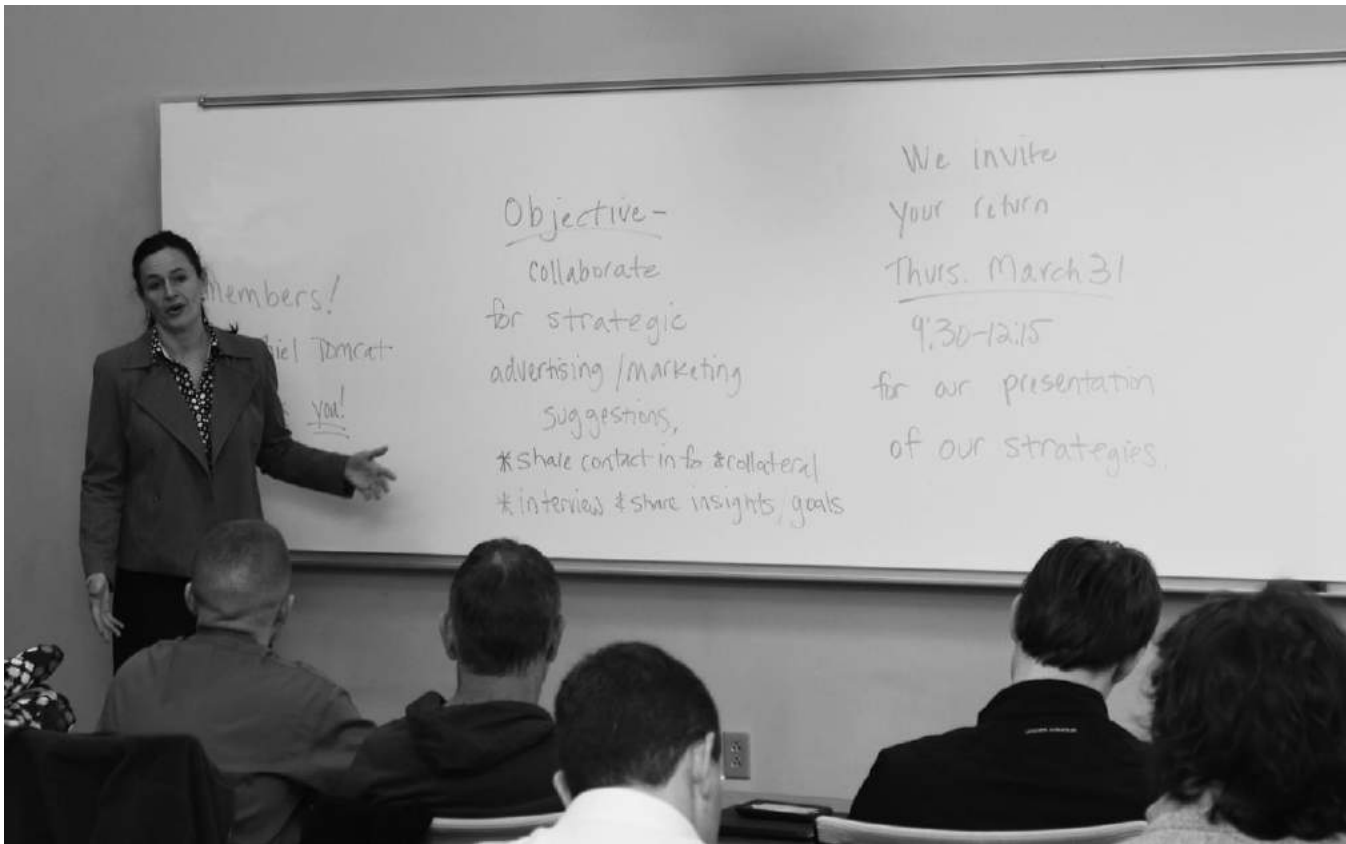 Members!
Tomcat
you!
Objective-
collaborate
for strategic
advertising/marketing
suggestions,
*share contact info & collateral
*interview & share insights/goals
We invite
your return
Thurs. March 31
9:30-12:15
for our presentation
of our strategies.
UNDER ARMOUR